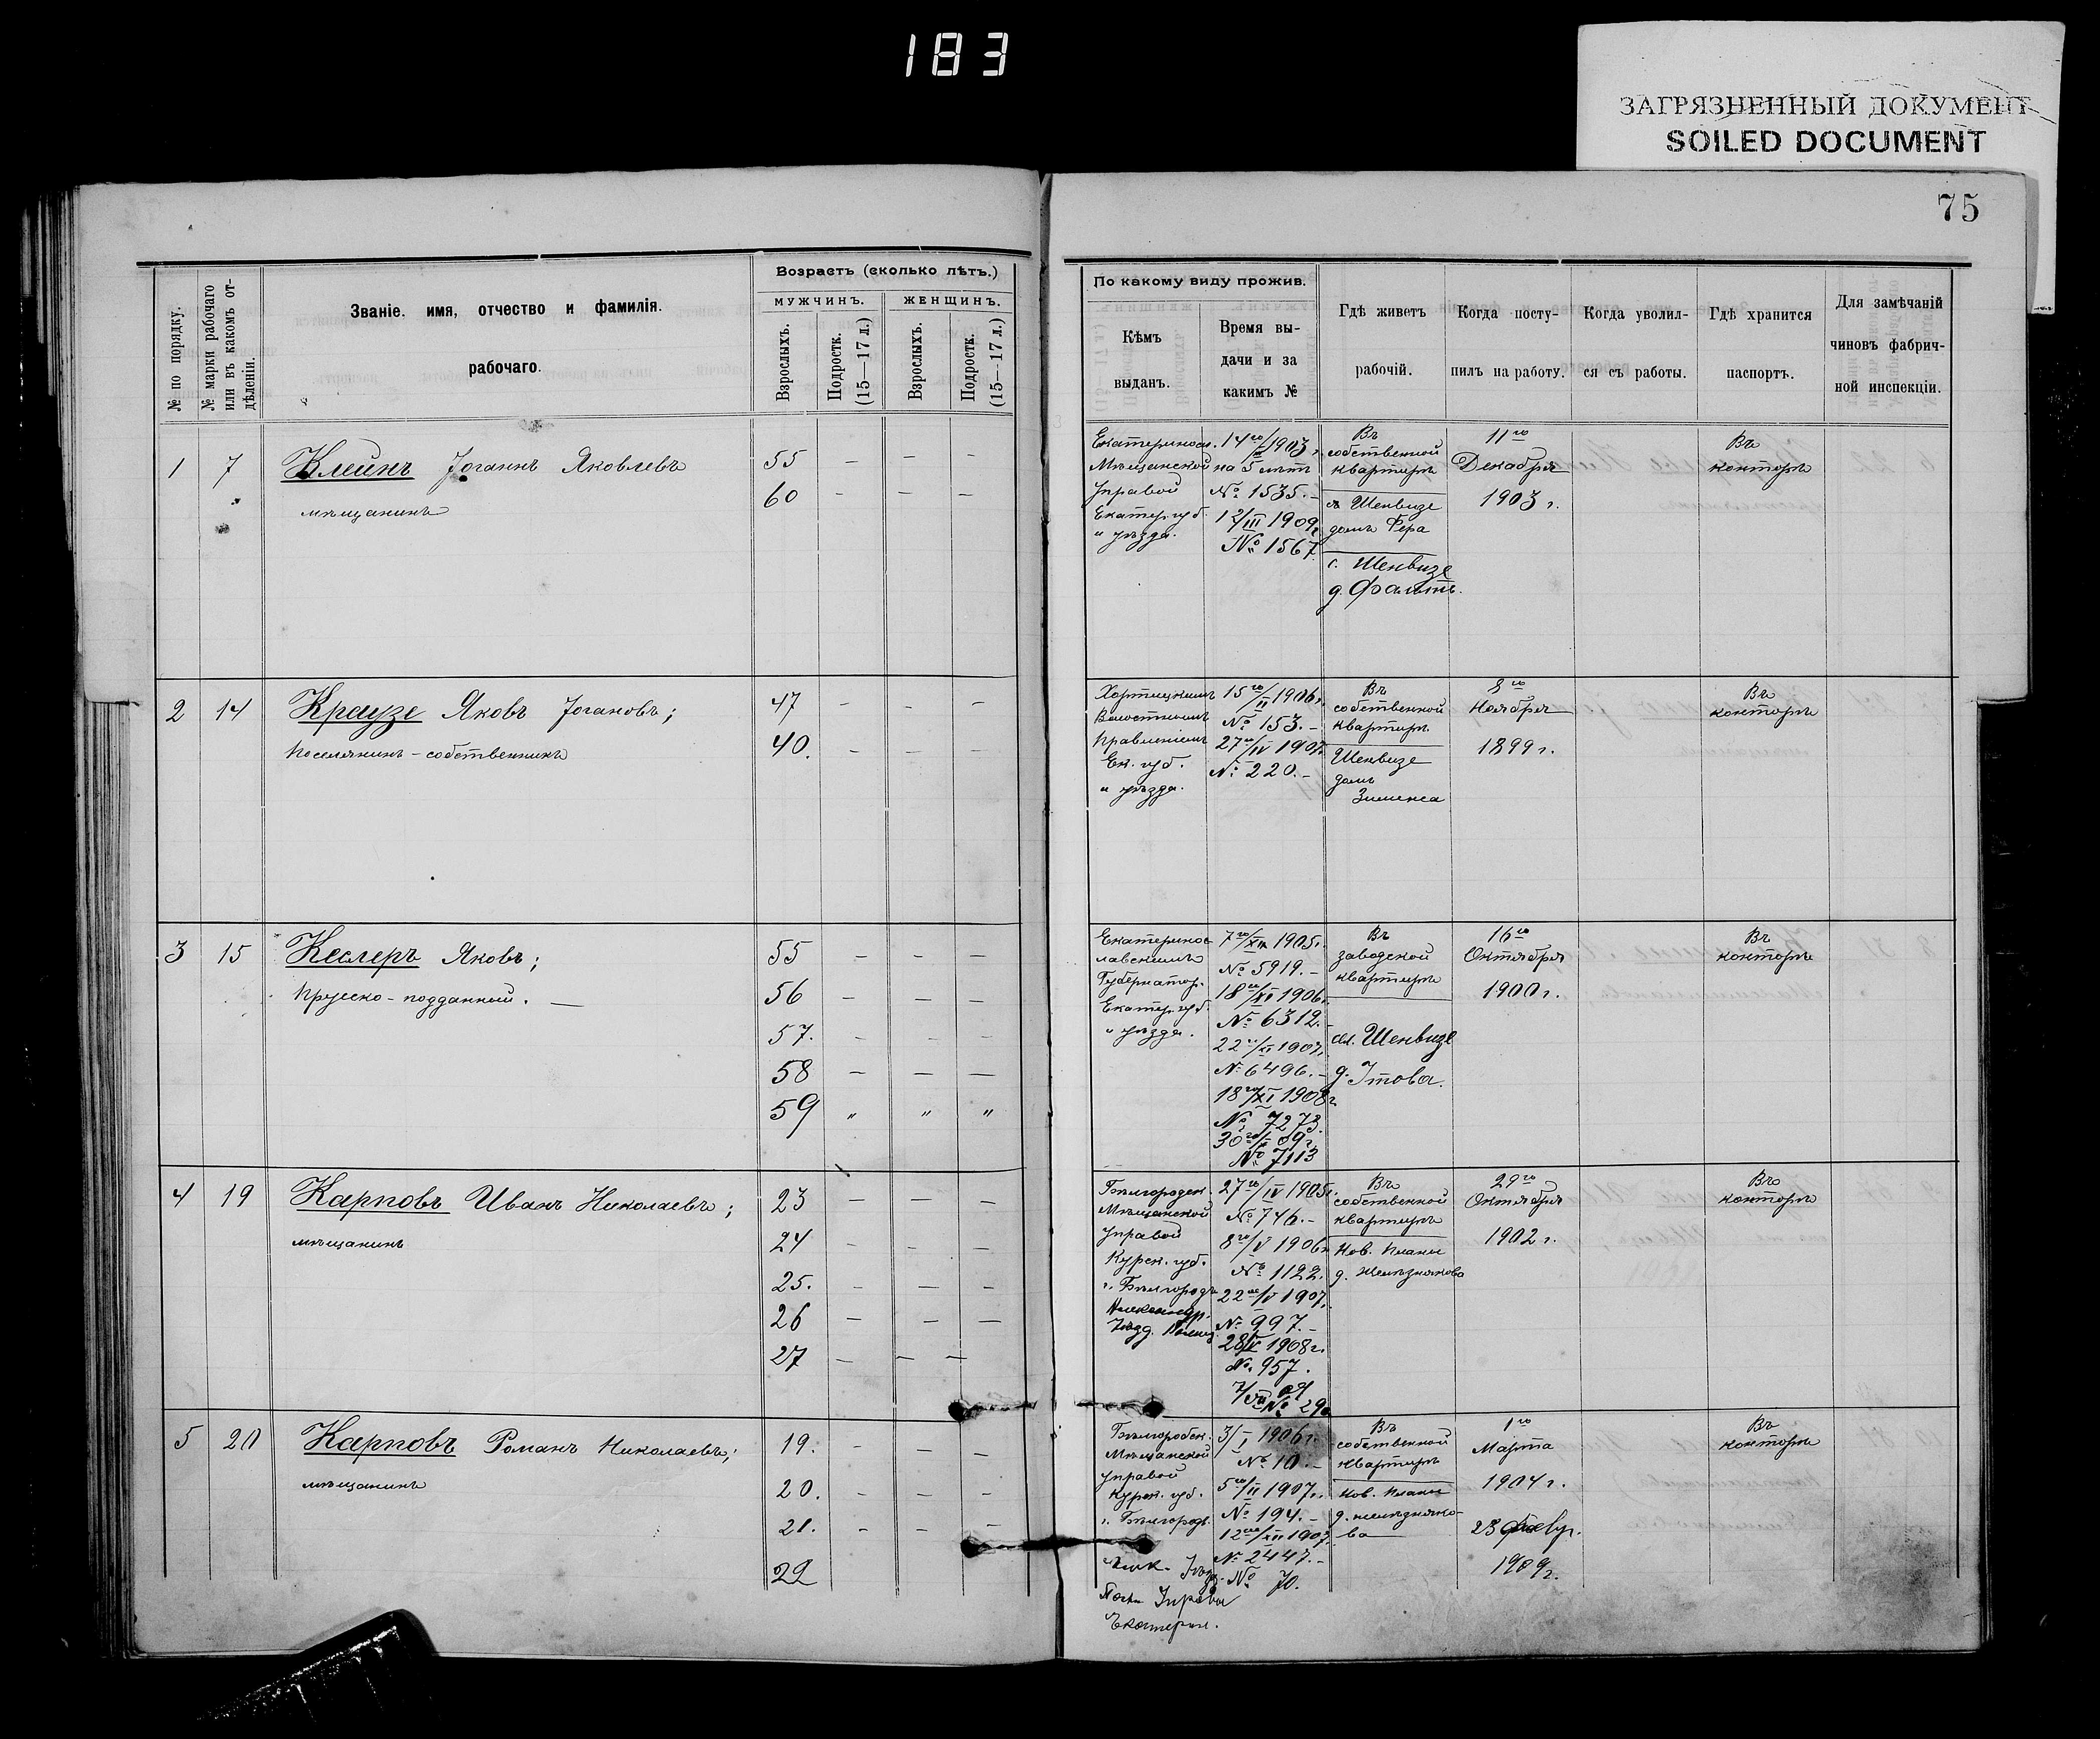 183
ЗАГРЯЗНЕННЫЙ ДОКУМЕНТ
SOILED DOCUMENT
75
№ по порядку.
№ марки рабочаго
или въ какомъ от-
дѣленіи.
Званіе. имя, отчество и фамилія.
рабочаго.
Возрастъ (сколько лѣтъ.)
МУЖЧИНЪ.
ЖЕНЩИНЪ.
Взрослыхъ.
Подростк.
(15—17 л.)
Взрослыхъ.
Подростк.
(15—17 л.)
По какому виду прожив.
Кѣмъ
выданъ.
Время вы-
дачи и за
какимъ №
Гдѣ живетъ
рабочій.
Когда посту-
пилъ на работу.
Когда уволил-
ся съ работы.
Гдѣ хранится
паспортъ.
Для замѣчаній
чиновъ фабрич-
ной инспекціи.
1 7 Клейнъ Іоганнъ Яковлевъ
мѣщанинъ
55 — — —
60 — — —
Екатеринос.
Мѣщанской
Управой
Екатер. губ.
и уѣзда.
14го/1903 г.
на 5 лѣтъ
№ 1535.—
12/III 1909 г.
№ 1567.
Въ
собственной
квартирѣ
Шенвизе
домъ Фера
с. Шенвизе
д. Фальтъ.
11го
Декабря
1903 г.
Въ
конторѣ
2 14 Краузе Яковъ Іогановъ;
поселянинъ-собственникъ
47 — — —
40. — — —
Хортицкимъ
Волостнымъ
Правленіемъ
Ек. губ.
и уѣзда.
15го/II 1906 г.
№ 153.—
27го/IV 1907 г.
№ 220.—
Въ
собственной
квартирѣ
Шенвизе
домъ
Зименса
8го
Ноября
1899 г.
Въ
конторѣ
3 15 Кеслеръ Яковъ;
Прусско-подданный. —
55 — — —
56 — — —
57. — — —
58 — — —
59 „ „ „
Екатеринос-
лавскимъ
Губернатор.
Екатер. губ.
и уѣзда.
7го/XII 1905 г.
№ 5919.—
18го/XI 1906 г.
№ 6312.—
22го/XI 1907 г.
№ 6496.—
18го/XI 1908 г.
№ 7273.
09 г.
№ 7113
Въ
заводской
квартирѣ
Шенвизе
д. Этова.
16го
Октября
1900 г.
Въ
конторѣ
4 19 Карповъ Иванъ Николаевъ;
мѣщанинъ
23 — — —
24 — — —
25. — — —
26 — — —
27 — — —
Бѣлгородск.
Мѣщанской
Управой
Курск. губ.
г. Бѣлгородъ
Александр.
Уѣзд.
27го/IV 1905 г.
№ 746.—
8го/V 1906 г.
№ 1122.
22го/V 1907 г.
№ 997.—
1908 г.
№ 957.
09
№ 290
Въ
собственной
квартирѣ
Нов. Планы
д. Желѣзнякова
29го
Октября
1902 г.
Въ
конторѣ
5 20 Карповъ Романъ Николаевъ;
мѣщанинъ
19. — — —
20. — — —
21. — — —
22
Бѣлгородск.
Мѣщанской
Управой
Курск. губ.
г. Бѣлгородъ.
Управы
Екатерин.
3/I 1906 г.
№ 10.—
5го/II 1907 г.
№ 194.—
12го/XII 1907 г.
№ 2447.—
№ 70.
Въ
собственной
квартирѣ
Нов. Планы
д. желѣзняко-
ва
1го
Марта
1904 г.
23
1909 г.
Въ
конторѣ